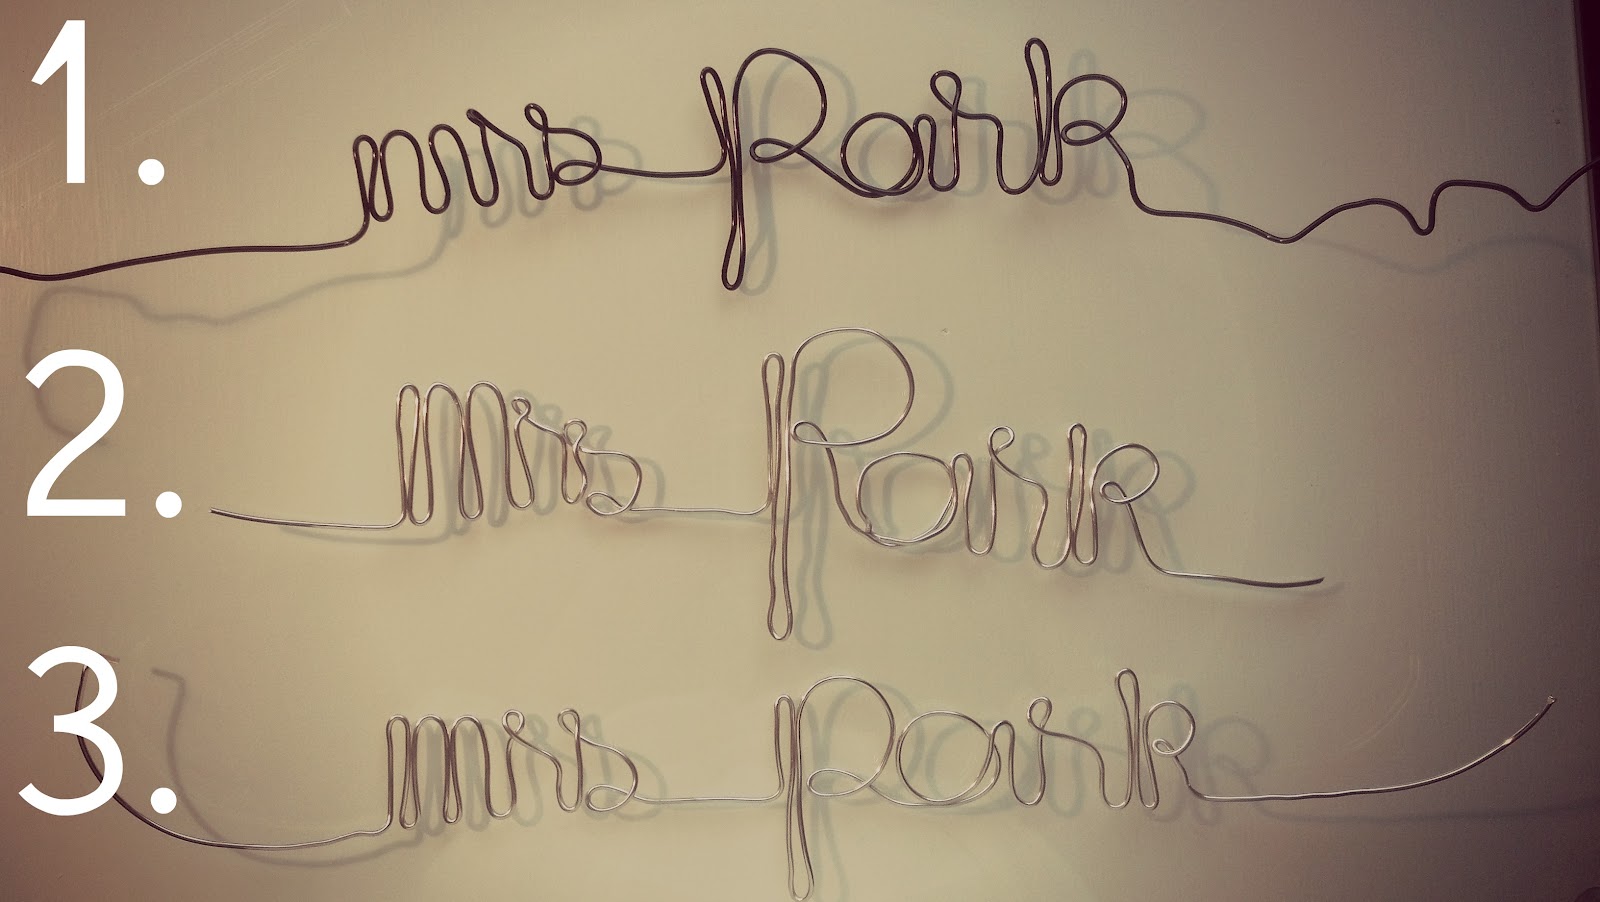 1. mrs Park
2. mrs Park
3. mrs Park